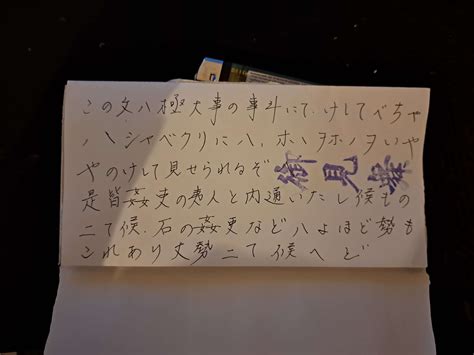 この文八極大事の事斗にて、けしてべちゃ
八\シャベクリに八、ホヽヲホノヲいや
やのけして見せられるぞ
御見
是皆姦吏の夷人と内通いたし候もの
ニて候、石の姦吏など八よほど勢も
これあり丈勢ニて候へど